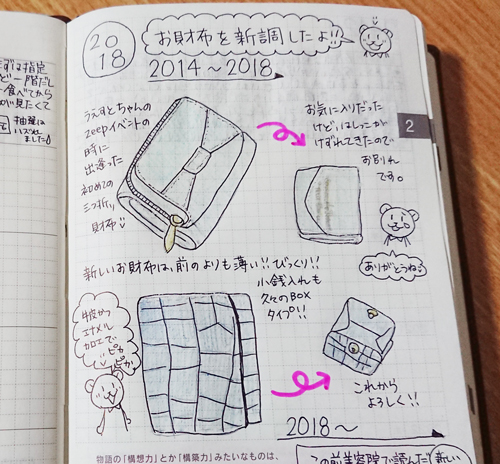 2018
お財布を新調したよ!!
2014〜2018
ずは指定
ど一階だし
食べてから
が見たくて
抽選は
ハズれ
ました♪
うえすとちゃんの
zeepイベントの
時に
出逢った
初めての
三つ折り
財布
お気に入りだった
けど、はしっこが
けずれてきたので
お別れ
です。
2
ありがとうね
新しいお財布は、前のよりも薄い!!びっくり!!
小銭入れも
久々のBOX
タイプ!!
牛皮かつ
エナメル
カエで
ピカ
ピカ
これから
よろしく!!
2018〜
物語の「構想力」とか「構築力」みたいなものは、
この前美容院で読んだ「新しい